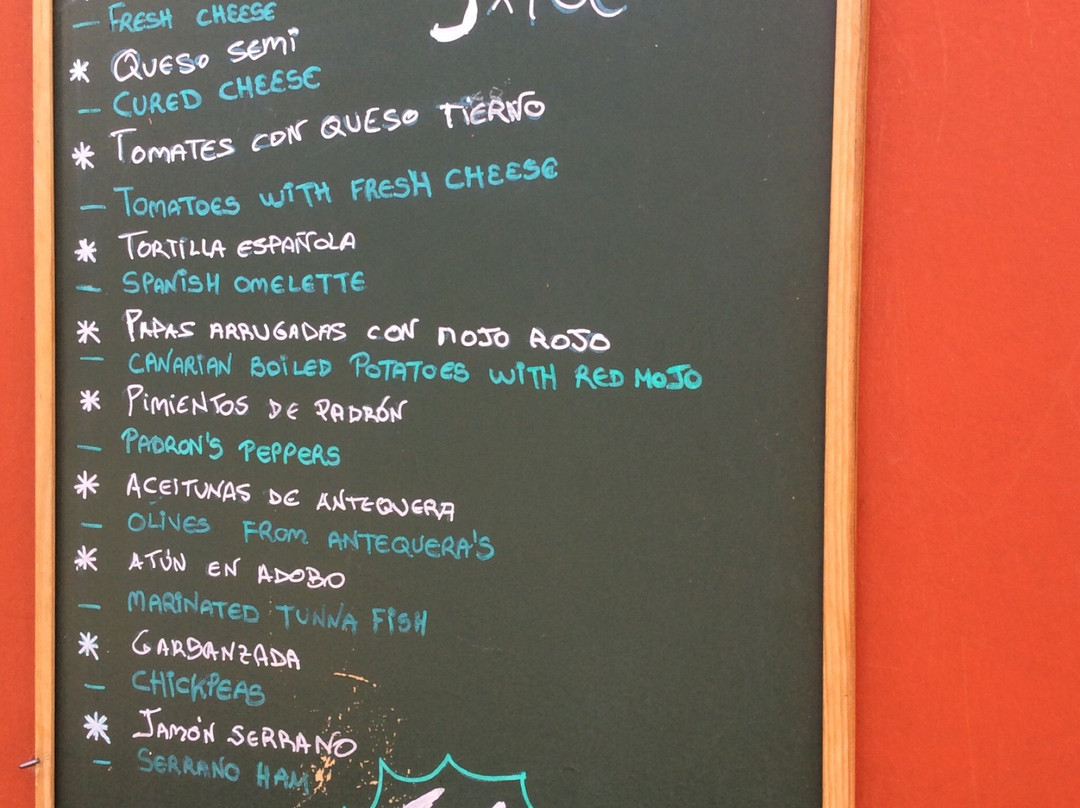 – FRESH CHEESE
* QUESO SEMI
– CURED CHEESE
* TOMATES CON QUESO TIERNO
– TOMATOES WITH FRESH CHEESE
* TORTILLA ESPAÑOLA
– SPANISH OMELETTE
* PAPAS ARRUGADAS CON MOJO ROJO
– CANARIAN BOILED POTATOES WITH RED MOJO
* PIMIENTOS DE PADRÓN
– PADRON'S PEPPERS
* ACEITUNAS DE ANTEQUERA
– OLIVES FROM ANTEQUERA'S
* ATÚN EN ADOBO
– MARINATED TUNNA FISH
* GARBANZADA
– CHICKPEAS
* JAMÓN SERRANO
– SERRANO HAM